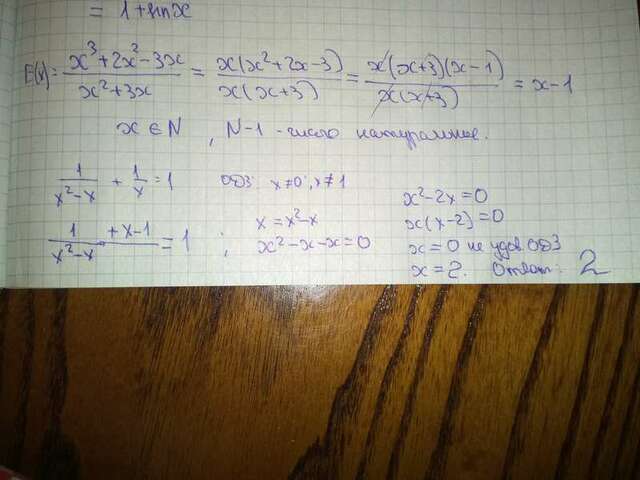 = 1 + sin x
E(x) = x³+2x²-3x / x²+3x = x(x²+2x-3) / x(x+3) = x(x+3)(x-1) / x(x+3) = x-1
x ∈ N , N-1 - число натуральное.
1/x²-x + 1/x = 1 ОДЗ x≠0; x≠1 x²-2x=0
1 + x-1 / x²-x = 1 ; x = x²-x x(x-2)=0
x²-x-x=0 x=0 не удов ОДЗ
x=2. Ответ: 2